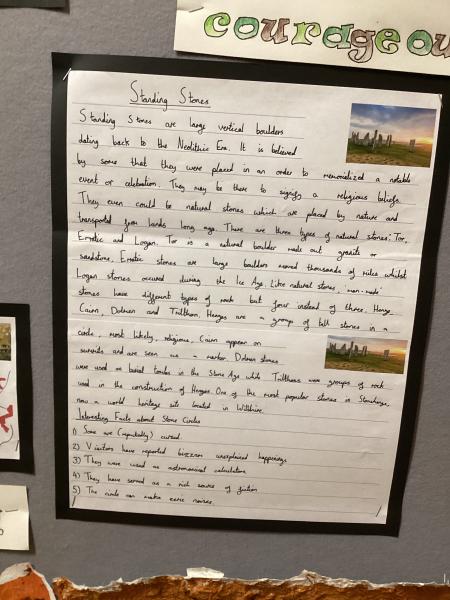 courageou
Standing Stones
Standing stones are large vertical boulders
dating back to the Neolithic Era. It is believed
by some that they were placed in an order to memorialized a notable
event or celebration. They may be there to signify a religious belief.
They even could be natural stones which are placed by nature and
transported from lands long ago. There are three types of natural stones: Tor,
Erratic and Logan. Tor is a natural boulder made out granite or
sandstone. Erratic stones are large boulders moved thousands of miles whilst
Logan stones occured during the Ice Age. Like natural stones, 'man-made'
stones have different types of rock but four instead of three. Henge,
Cairn, Dolmen and Trilithon. Henges are a group of tall stones in a
circle, most likely, religious. Cairn appear on
summits and are seen as a marker. Dolmen stones
were used as burial tombs in the Stone Age while Trilithons were groups of rock
used in the construction of Henges. One of the most popular stones is Stonehenge,
now a world heritage site located in Wiltshire.
Interesting Facts about Stone Circles
1) Some are (reputedly) cursed.
2) Visitors have reported unexplained happenings
3) They were used as astronomical calculators
4) They have served as a rich source of fiction
5) The circle can make eerie noises.